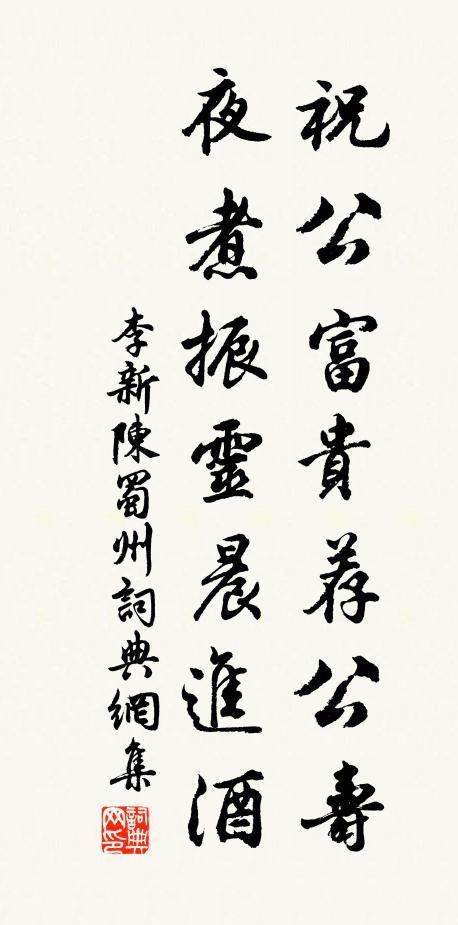 祝公富貴荐公壽
夜煮振靈晨進酒
李新陳蜀州詞典網集
詞典網印